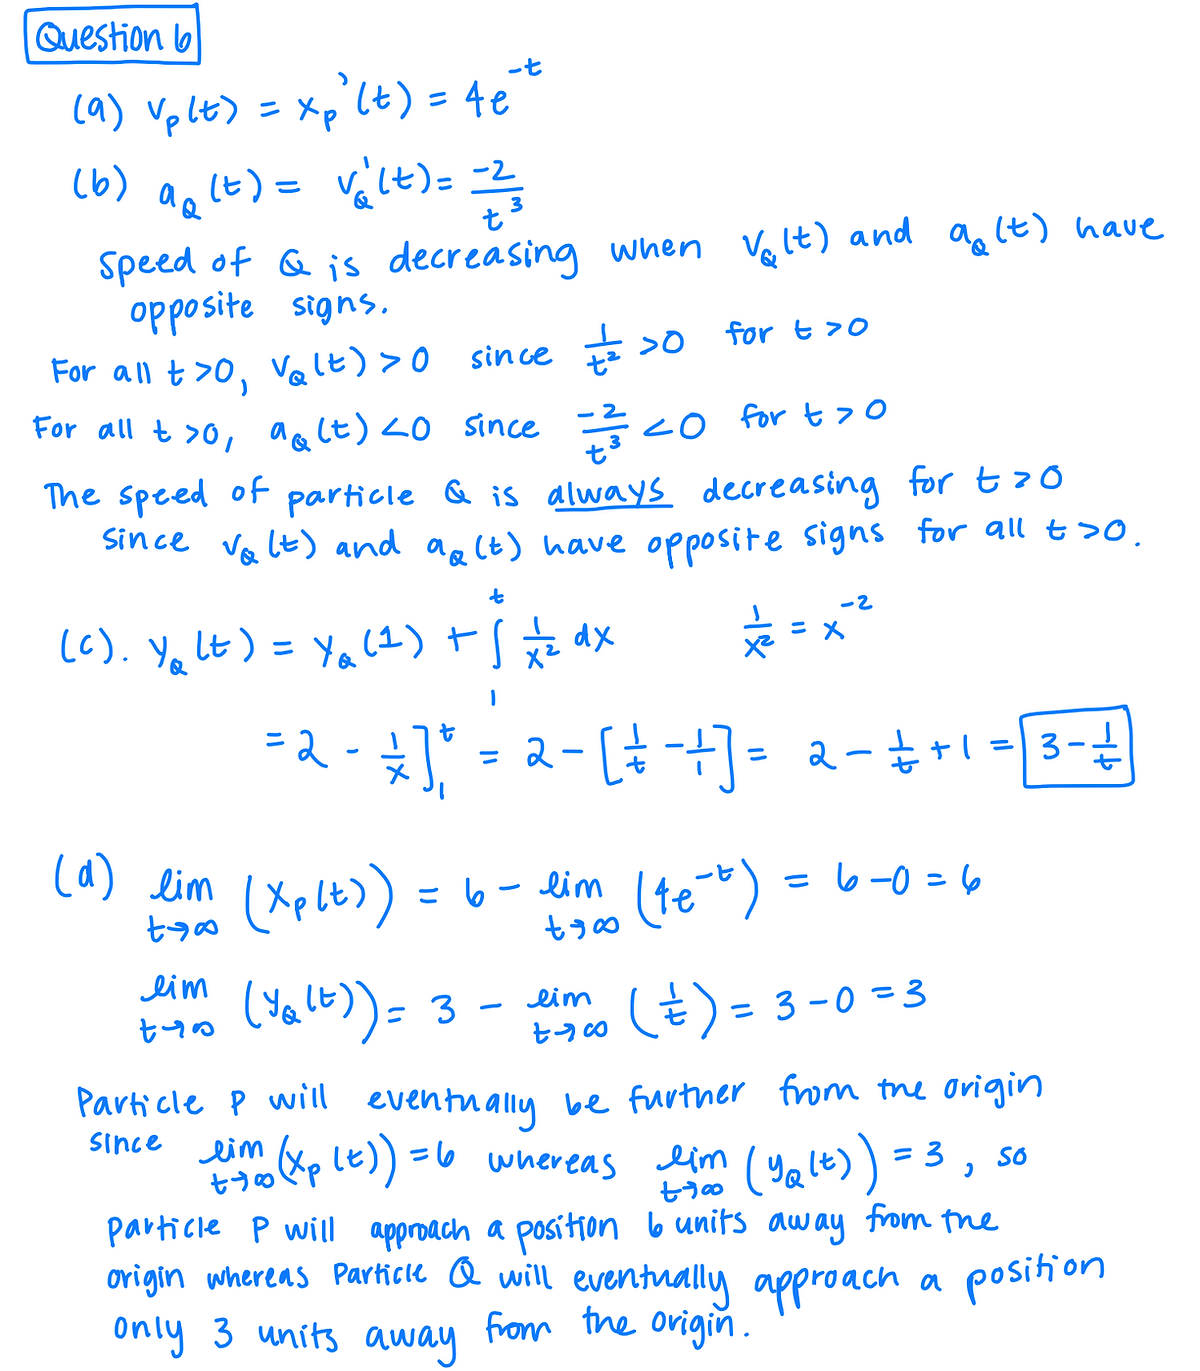 Question 6
(a) v_P(t) = x_P'(t) = 4e^{-t}
(b) a_Q(t) = v_Q'(t) = \frac{-2}{t^3}
Speed of Q is decreasing when v_Q(t) and a_Q(t) have
opposite signs.
For all t>0, v_Q(t) > 0 since \frac{1}{t^2} >0 for t >0
For all t >0, a_Q(t) <0 since \frac{-2}{t^3} <0 for t >0
The speed of particle Q is always decreasing for t >0
since v_Q(t) and a_Q(t) have opposite signs for all t >0.
(c). y_Q(t) = y_Q(1) + \int_1^t \frac{1}{x^2} dx \frac{1}{x^2} = x^{-2}
= 2 - \frac{1}{x}]_1^t = 2 - [\frac{1}{t} - \frac{1}{1}] = 2 - \frac{1}{t} + 1 = 3 - \frac{1}{t}
(d) lim_{t→∞} (x_P(t)) = 6 - lim_{t→∞} (4e^{-t}) = 6 - 0 = 6
lim_{t→∞} (y_Q(t)) = 3 - lim_{t→∞} (\frac{1}{t}) = 3 - 0 = 3
Particle P will eventually be further from the origin
since lim_{t→∞} (x_P(t)) = 6 whereas lim_{t→∞} (y_Q(t)) = 3, so
particle P will approach a position 6 units away from the
origin whereas Particle Q will eventually approach a position
only 3 units away from the origin.